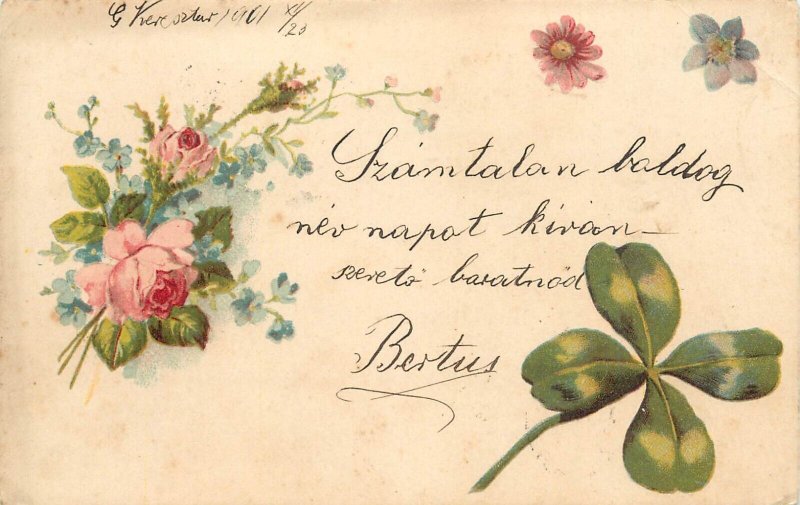 G Keresztur 1901 XI/23
Számtalan boldog
név napot kíván
szerető baratnöd
Bertus